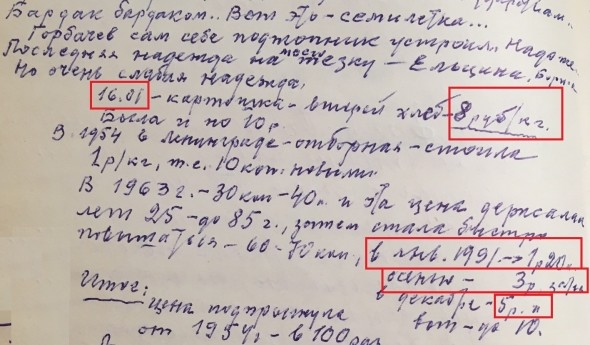 Бардак бардаком.. Вот это - семилетка...
Горбачев сам себе подтопник устроил. Надо же.
Последняя надежда на моего тезку - Ельцина, Бориса
Но очень слабая надежда.
16.01 - картошка - второй хлеб - 8 руб/кг.
Была и по 10р.
В 1954 в Ленинграде - отборная - стоила
1р/кг, т.е. 10 коп. новыми.
В 1963 г. - 30 коп - 40к. и эта цена держалась
лет 25 - до 85 г., затем стала быстро
повышаться - 60-70 коп., в янв. 1991 -> 1р 20к.
осенью - 3р.
в декабре - 5р. и
Итог:
вот - до 10.
цена подпрыгнула
от 1954г. - в 100 раз